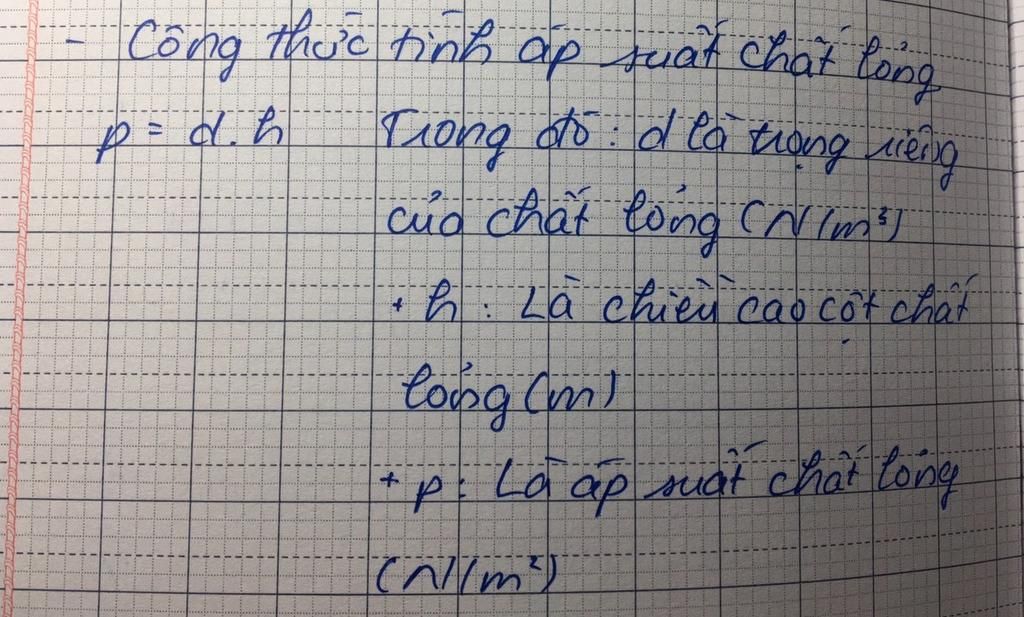 - Công thức tính áp suất chất lỏng
p = d.h Trong đó: d là trọng riêng
của chất lỏng (N/m³)
+ h: Là chiều cao cột chất
lỏng (m)
+ p: Là áp suất chất lỏng
(N/m²)